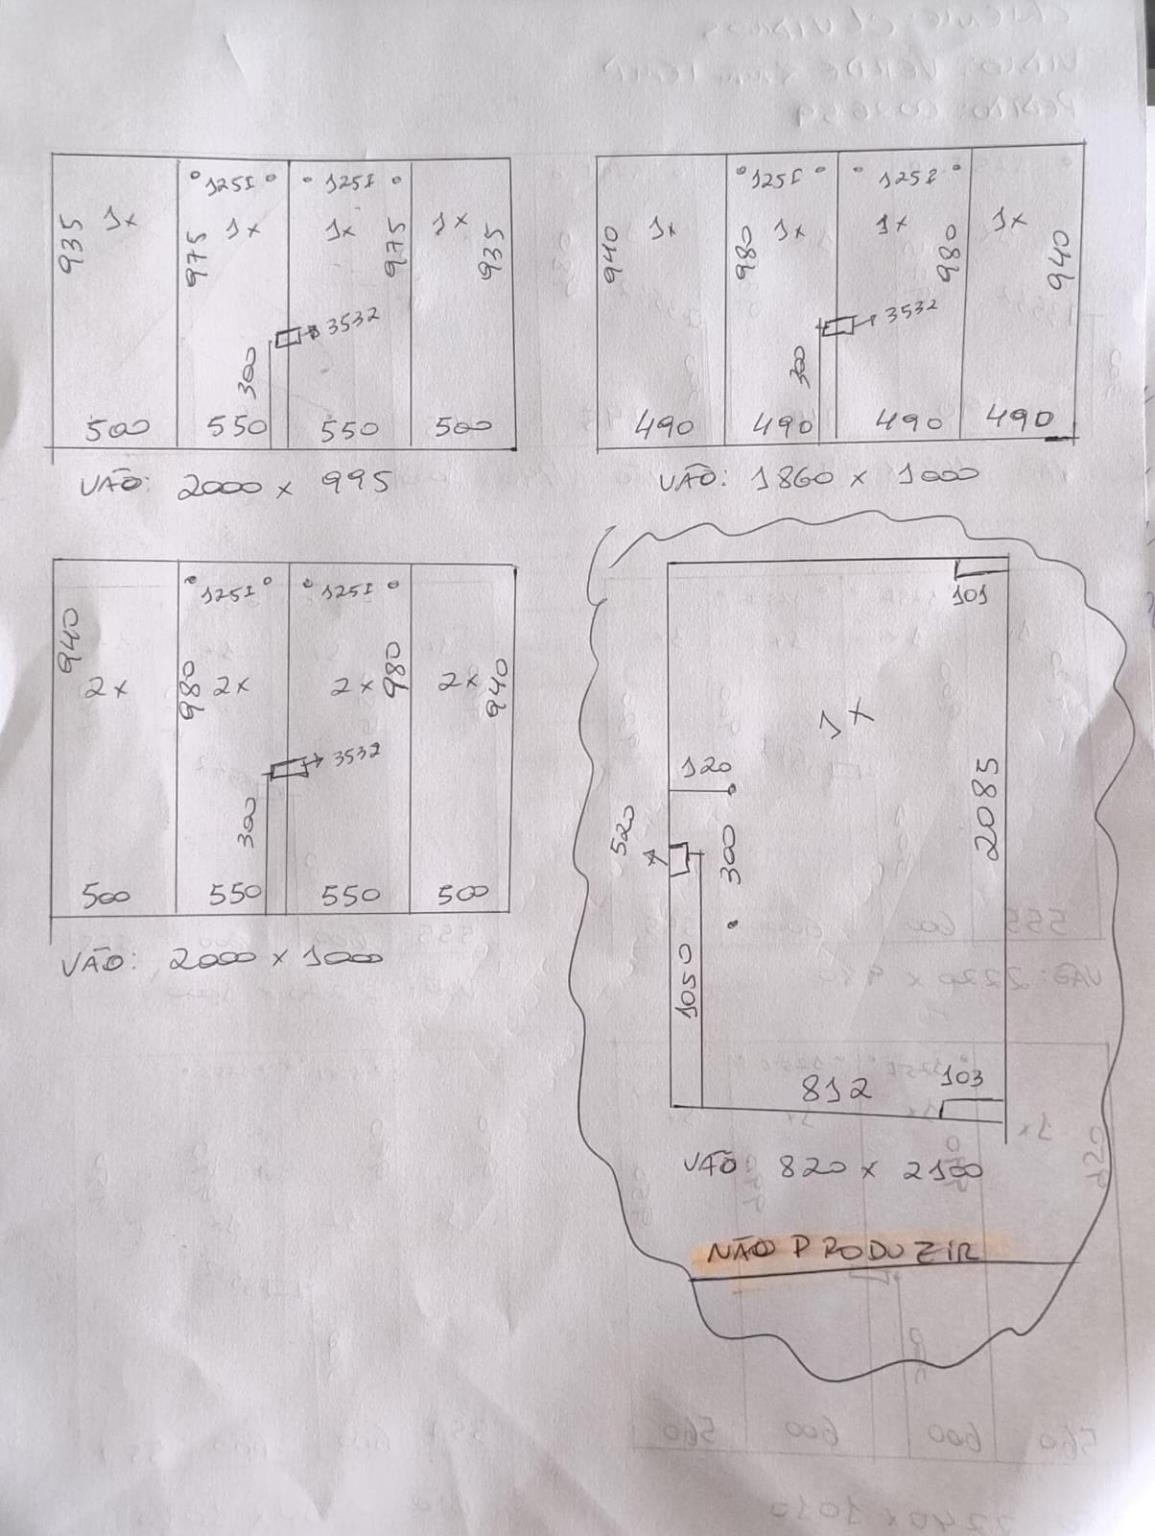 125I 125I
935 1x 975 1x 1x 975 1x 935
3532
300
500 550 550 500
VÃO: 2000 x 995
125I 125I
940 1x 980 1x 1x 980 1x 940
3532
300
490 490 490 490
VÃO: 1860 x 1000
125I 125I
940 2x 980 2x 2x 980 2x 940
3532
300
500 550 550 500
VÃO: 2000 x 1000
101
1x
120
520
300
2085
1050
812
103
VÃO 820 x 2100
NÃO PRODUZIR